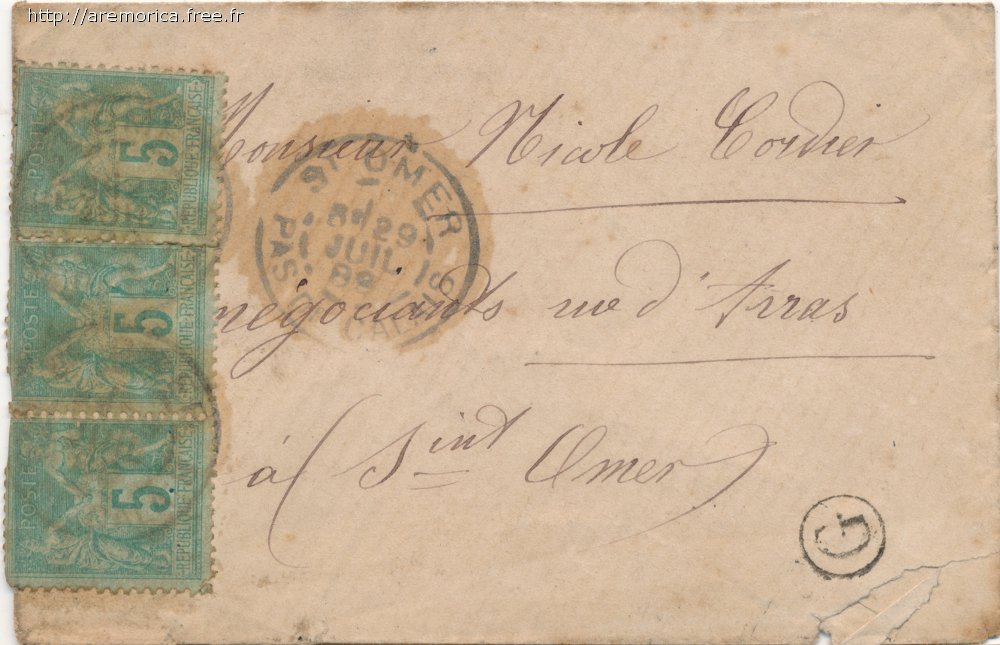 http://aremorica.free.fr
POSTES
5
RÉPUBLIQUE FRANÇAISE
POSTES
5
RÉPUBLIQUE FRANÇAISE
POSTES
5
RÉPUBLIQUE FRANÇAISE
Monsieur Nicole Cordier
négociants rue d'Arras
à (Sint Omer)
ST OMER
29
JUIL
PAS DE CALAIS
G